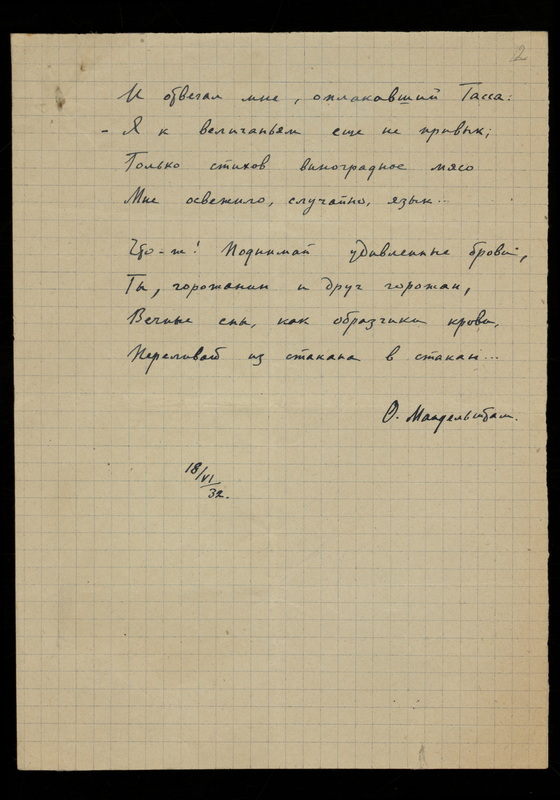 2
И отвечал мне, оплакавший Тасса:
– Я к величаньям еще не привык;
Только стихов виноградное мясо
Мне освежило, случайно, язык...
Что-ж! Поднимай удивленные брови,
Ты, горожанин и друг горожан,
Вечные сны, как образчики крови,
Переливай из стакана в стакан...
О. Мандельштам.
18/VI
32.